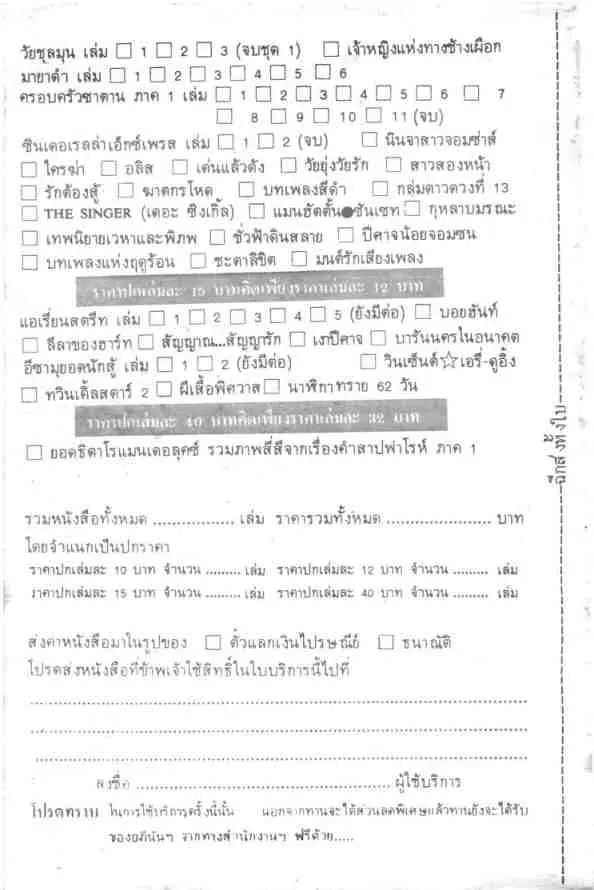 วัยชุลมุน เล่ม □ 1 □ 2 □ 3 (จบชุด 1) □ เจ้าหญิงแห่งทางช้างเผือก
มายาดำ เล่ม □ 1 □ 2 □ 3 □ 4 □ 5 □ 6
ครอบครัวซาตาน ภาค 1 เล่ม □ 1 □ 2 □ 3 □ 4 □ 5 □ 6 □ 7
□ 8 □ 9 □ 10 □ 11 (จบ)
ซินเดอเรลล่าเอ็กซ์เพรส เล่ม □ 1 □ 2 (จบ) □ นินจาสาวจอมซ่าส์
□ ใครฆ่า □ อลิส □ เด่นแล้วดัง □ วัยยุ่งวัยรัก □ สาวสองหน้า
□ รักต้องสู้ □ ฆาตกรโหด □ บทเพลงสีดำ □ กลุ่มดาวดวงที่ 13
□ THE SINGER (เดอะ ซิงเกิ้ล) □ แมนฮัตตั้น●ซันเซท □ กุหลาบมรณะ
□ เทพนิยายเวหาและพิภพ □ ชั่วฟ้าดินสลาย □ ปีศาจน้อยจอมซน
□ บทเพลงแห่งฤดูร้อน □ ชะตาลิขิต □ มนต์รักเสียงเพลง
ราคาปกเล่มละ 15 บาทคิดเพียงราคาเล่มละ 12 บาท
แอเรี่ยนสตรีท เล่ม □ 1 □ 2 □ 3 □ 4 □ 5 (ยังมีต่อ) □ บอยฮันท์
□ ลีลาของฮาร์ท □ สัญญาณ...สัญญารัก □ เงาปีศาจ □ บารันนครในอนาคต
อีซามุยอดนักสู้ เล่ม □ 1 □ 2 (ยังมีต่อ) □ วินเซ็นต์☆เอรี่-ดูอิ้ง
□ ทวินเคิ้ลสตาร์ 2 □ ผีเสื้อพิศวาส □ นาฬิกาทราย 62 วัน
ราคาปกเล่มละ 40 บาทคิดเพียงราคาเล่มละ 32 บาท
□ ยอดธิดาโรแมนเดอลุคซ์ รวมภาพสี่สีจากเรื่องคำสาปฟาโรห์ ภาค 1
ฉีกส่งทั้งใบ
รวมหนังสือทั้งหมด .................. เล่ม ราคารวมทั้งหมด ....................... บาท
โดยจำแนกเป็นปกราคา
ราคาปกเล่มละ 10 บาท จำนวน ......... เล่ม ราคาปกเล่มละ 12 บาท จำนวน ......... เล่ม
ราคาปกเล่มละ 15 บาท จำนวน ......... เล่ม ราคาปกเล่มละ 40 บาท จำนวน ......... เล่ม
ส่งค่าหนังสือมาในรูปของ □ ตั๋วแลกเงินไปรษณีย์ □ ธนาณัติ
โปรดส่งหนังสือที่ข้าพเจ้าใช้สิทธิ์ในใบบริการนี้ไปที่
ลงชื่อ .................................................... ผู้ใช้บริการ
โปรดทราบ ในการใช้บริการครั้งนี้นั้น นอกจากท่านจะได้ส่วนลดพิเศษแล้วท่านยังจะได้รับ
ของอภินันฯ จากทางสำนักงานฯ ฟรีด้วย.....